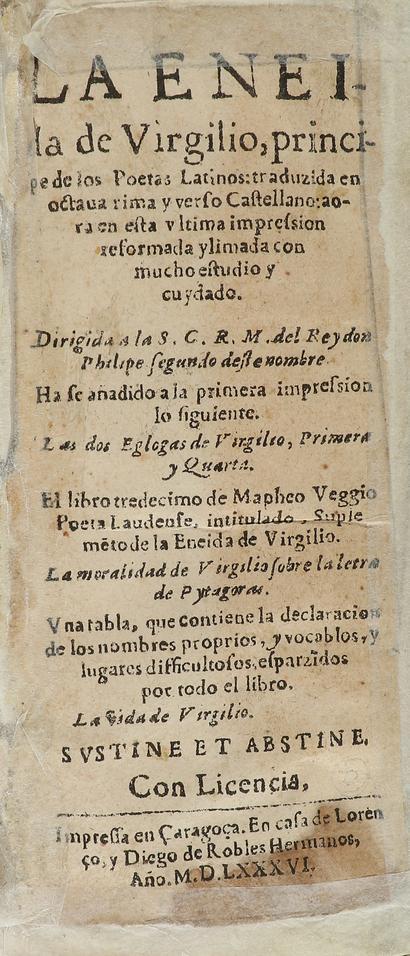 LA ENEI-
da de Virgilio, princi-
pe de los Poetas Latinos: traduzida en
octaua rima y verso Castellano: ao-
ra en esta vltima impression
reformada y limada con
mucho estudio y
cuydado.
Dirigida a la S. C. R. M. del Rey don
Philipe segundo deste nombre.
Ha se añadido a la primera impression
lo siguiente.
Las dos Eglogas de Virgilio, Primera
y Quarta.
El libro tredecimo de Mapheo Veggio
Poeta Laudense, intitulado, Suple
mēto de la Eneida de Virgilio.
La moralidad de Virgilio sobre la letra
de Pytagoras.
Vna tabla, que contiene la declaracion
de los nombres proprios, y vocablos, y
lugares difficultosos, esparzidos
por todo el libro.
La vida de Virgilio.
SVSTINE ET ABSTINE.
Con Licencia,
Impressa en Çaragoça. En casa de Loren
ço, y Diego de Robles Hermanos,
Año. M.D.LXXXVI.